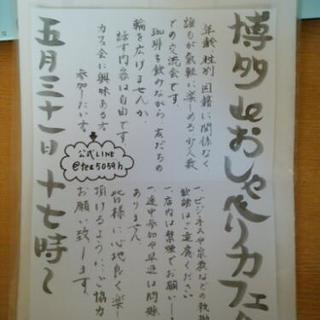 博多deおしゃべりカフェ会
年齢、性別、国籍に関係なく
誰もが気軽に楽しめる少人数
での交流会です。
珈琲を飲みながら友だちの
輪を広げませんか。
話す内容は自由です。
カフェ会に興味ある方
参加下さい。
公式LINE
一、ビジネスや宗教などの勧誘
勧誘はご遠慮ください
一、店内は禁煙でお願い
一、途中参加や早退は問題
ありません
皆様に心地良く楽
頂けるようにご協力
お願い致します。
五月三十一日十七時〜